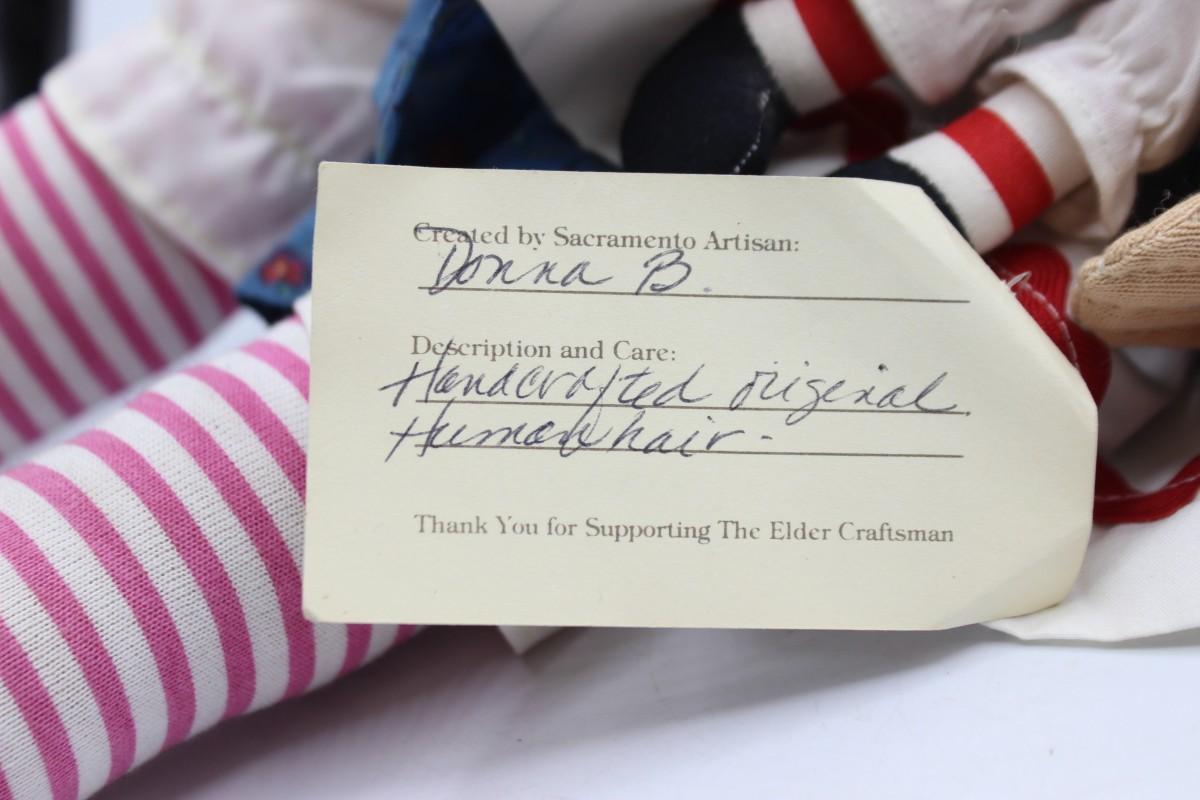 Created by Sacramento Artisan:
Donna B.
Description and Care:
Handcrafted original.
Human hair -
Thank You for Supporting The Elder Craftsman